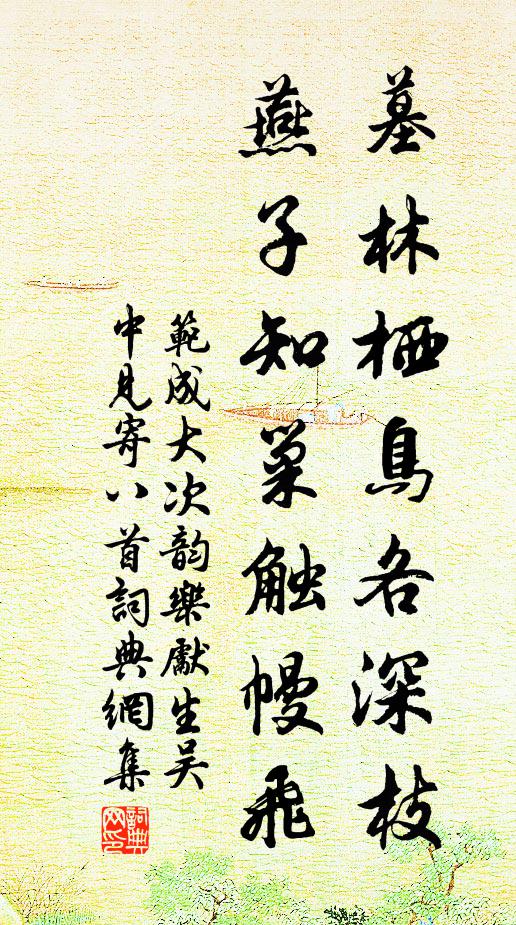 墓林栖鳥各深枝
燕子知巢触幔飛
範成大次韵樂獻生吴
中見寄八首詞典網集
詞典网印